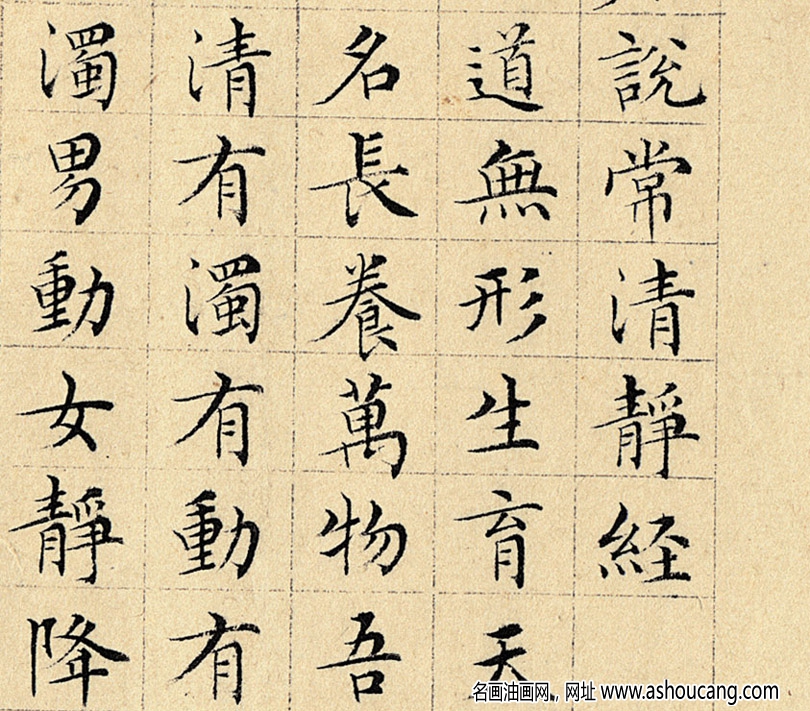 說常清靜経
道無形生育天
名長養萬物吾
清有濁有動有
濁男動女靜降
名画油画网，网址 www.ashoucang.com